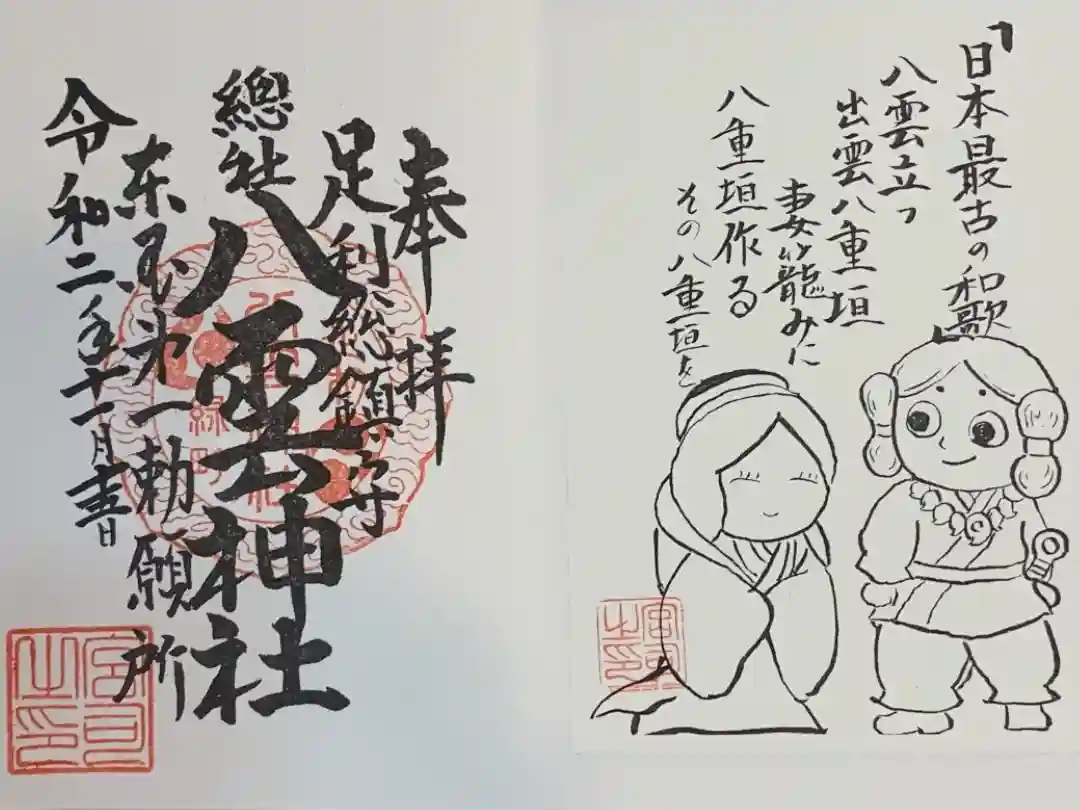 「日本最古の和歌」
八雲立つ
出雲八重垣
妻籠みに
八重垣作る
その八重垣を
宮司之印
奉拝
足利総鎮守
總社八雲神社
東国第一勅願所
令和二年十一月吉日
緑町
宮司之印